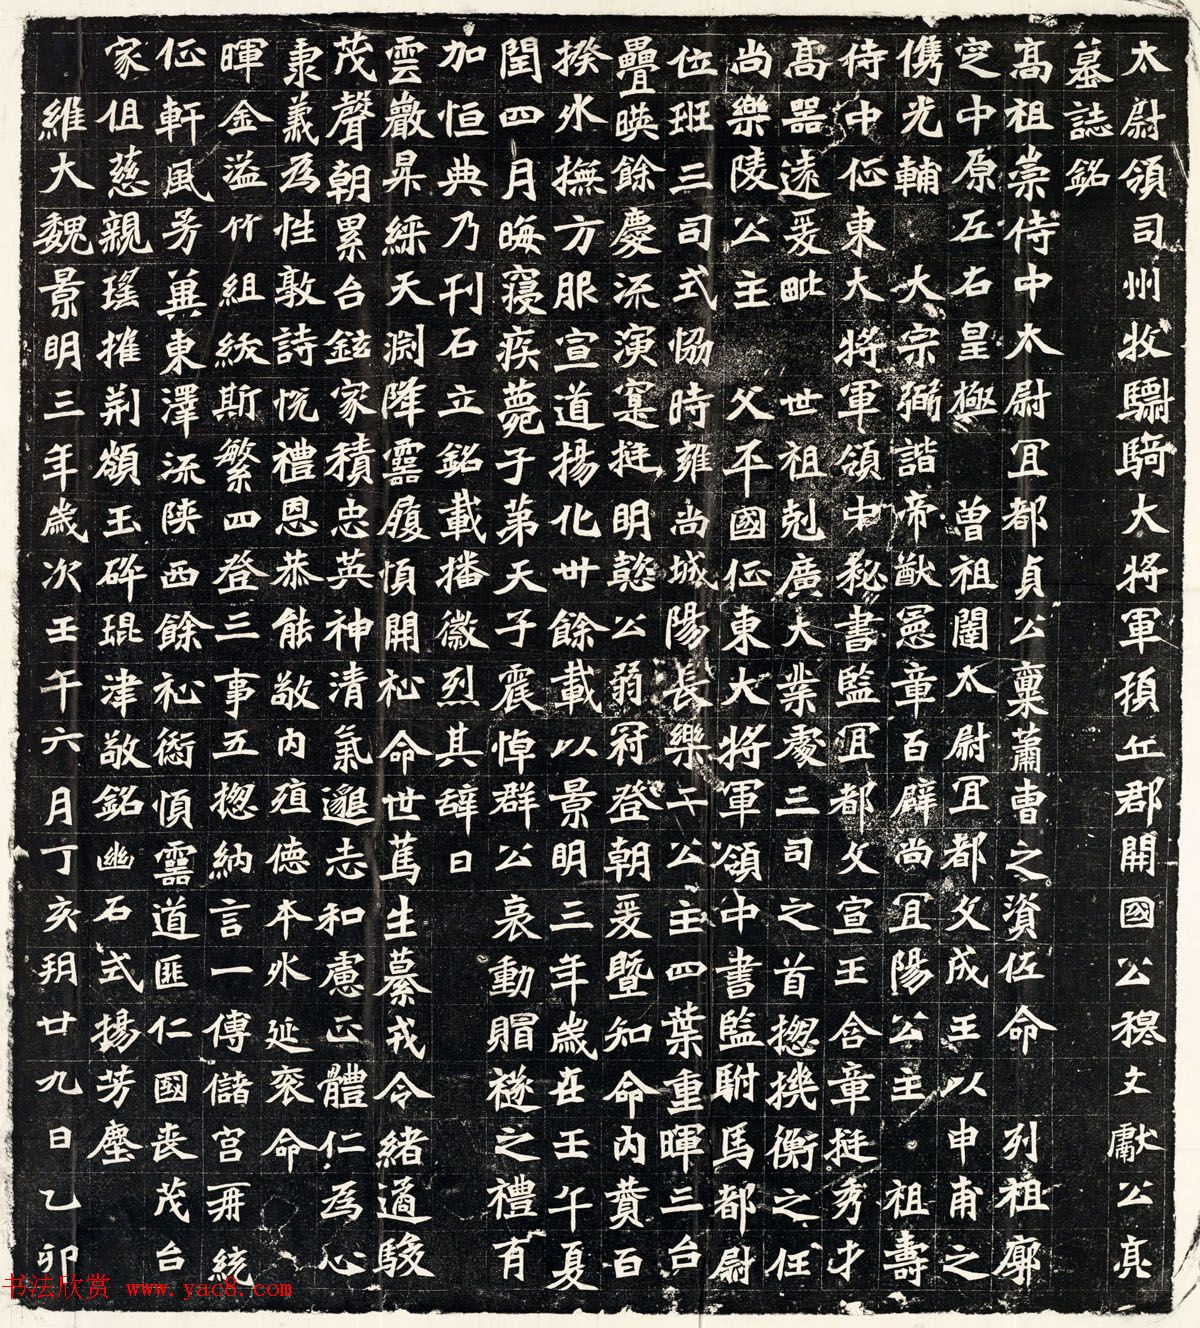 太尉領司州牧驃騎大將軍頓丘郡開國公穆文獻公亮
墓誌銘
高祖崇侍中太尉冝都貞公稟蕭曺之資佐命 列祖廓
定中原左右皇極 曽祖闥太尉冝都文成王以申甫之
儁光輔 大宗弼諧帝猷憲章百辟尚冝陽公主 祖壽
侍中征東大將軍領中秘書監冝都文宣王含章挺秀才
高器遠爰毗 世祖剋廣大業處三司之首揔機衡之任
尚樂陵公主 父平國征東大將軍領中書監駙馬都尉
位班三司式恊時雍尚城陽長樂二公主四葉重暉三台
疊暎餘慶流演寔挺明懿公弱冠登朝爰暨知命內賛百
揆外撫方服宣道揚化卅餘載以景明三年歲在壬午夏
閏四月晦寑疾薨于第天子震悼群公哀動賵襚之禮有
加恒典乃刊石立銘載播徽烈其辞曰
雲巖昇綵天淵降靈履順開祉命世篤生纂戎令緒遹駿
茂聲朝累台鉉家積忠英神清氣邈志和慮正體仁為心
秉義為性敦詩悅禮恩恭能敬內殖德本外延衮命
暉金溢竹組紱斯繁四登三事五揔納言一傅儲宮再統
征軒風芳冀東澤流陝西餘祉銜慎靈道匪仁國丧茂台
家徂慈親瑤摧荆頟玉碎琨津敬銘幽石式揚芳塵
維大魏景明三年歲次壬午六月丁亥朔廿九日乙卯
书法欣赏 www.yac8.com